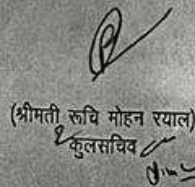 (श्रीमती रूचि मोहन रयाल)
कुलसचिव